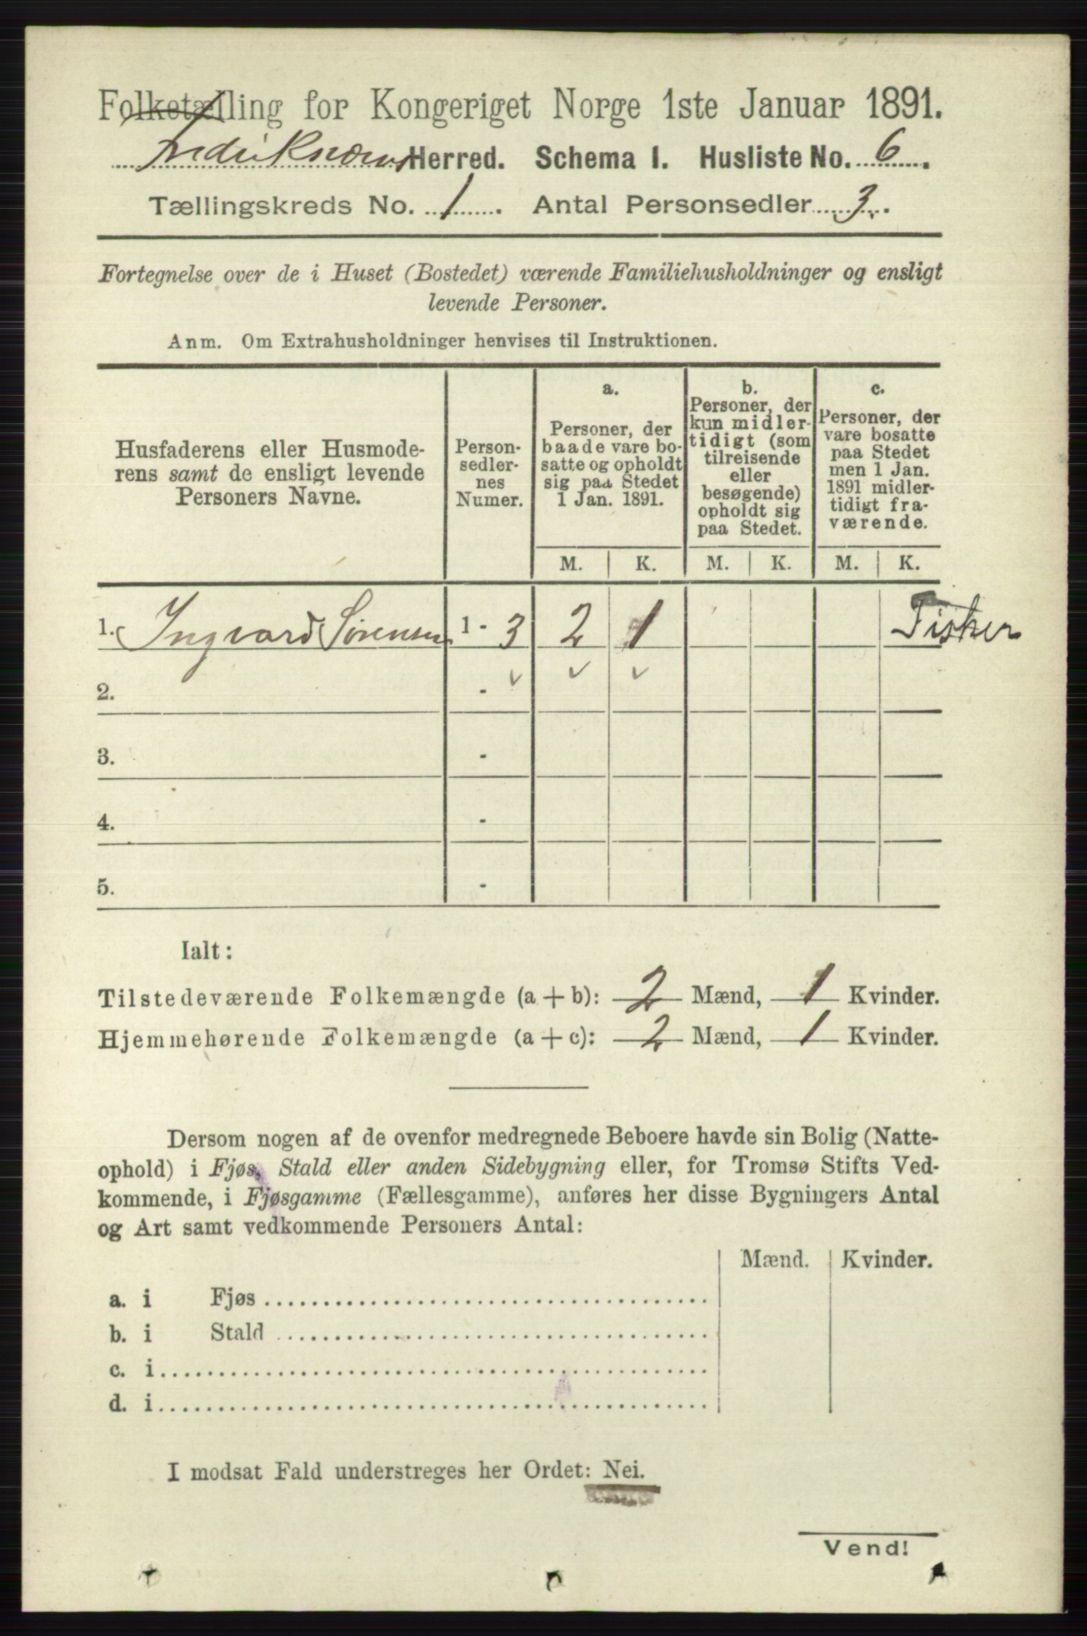 Folketælling for Kongeriget Norge 1ste Januar 1891.
Fredriksværns Herred. Schema I. Husliste No. 6.
Tællingskreds No. 1. Antal Personsedler 3.
Fortegnelse over de i Huset (Bostedet) værende Familiehusholdninger og ensligt
levende Personer.
Anm. Om Extrahusholdninger henvises til Instruktionen.
Husfaderens eller Husmode-
rens samt de ensligt levende
Personers Navne.
Person-
sedler-
nes
Numer.
a.
Personer, der
baade vare bo-
satte og opholdt
sig paa Stedet
1 Jan. 1891.
b.
Personer, der
kun midler-
tidigt (som
tilreisende
eller
besøgende)
opholdt sig
paa Stedet.
c.
Personer, der
vare bosatte
paa Stedet
men 1 Jan.
1891 midler-
tidigt fra-
værende.
M. K. M. K. M. K.
1. Ingvard Sørensen 1 - 3 2 1 Fisker
2. -
3. -
4. -
5. -
Ialt:
Tilstedeværende Folkemængde (a + b): 2 Mænd, 1 Kvinder.
Hjemmehørende Folkemængde (a + c): 2 Mænd, 1 Kvinder.
Dersom nogen af de ovenfor medregnede Beboere havde sin Bolig (Natte-
ophold) i Fjøs, Stald eller anden Sidebygning eller, for Tromsø Stifts Ved-
kommende, i Fjøsgamme (Fællesgamme), anføres her disse Bygningers Antal
og Art samt vedkommende Personers Antal:
Mænd. Kvinder.
a. i Fjøs
b. i Stald
c. i
d. i
I modsat Fald understreges her Ordet: Nei.
Vend!